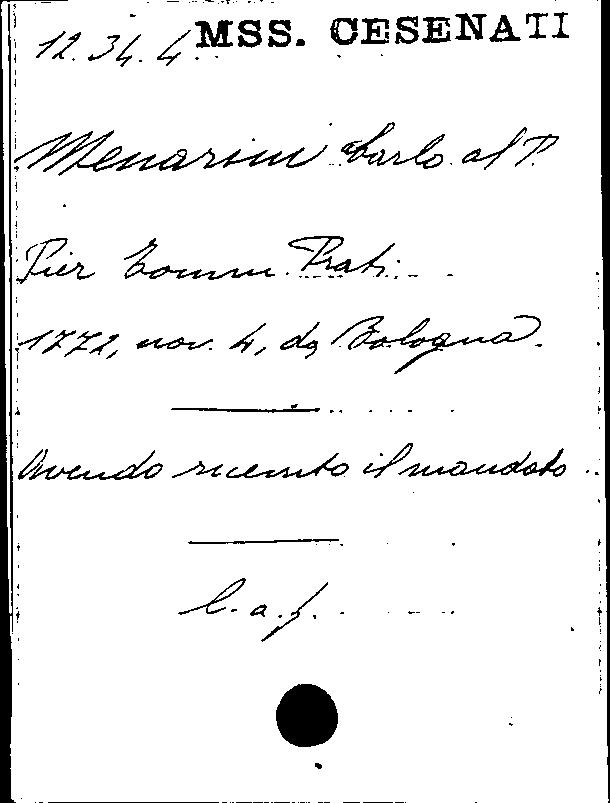 12.34.4. MSS. CESENATI
Menarini Carlo al P.
Pier Tomm. Prati.
1772, nov. 4, da Bologna.
Avendo ricevuto il mandato
L. a. f.